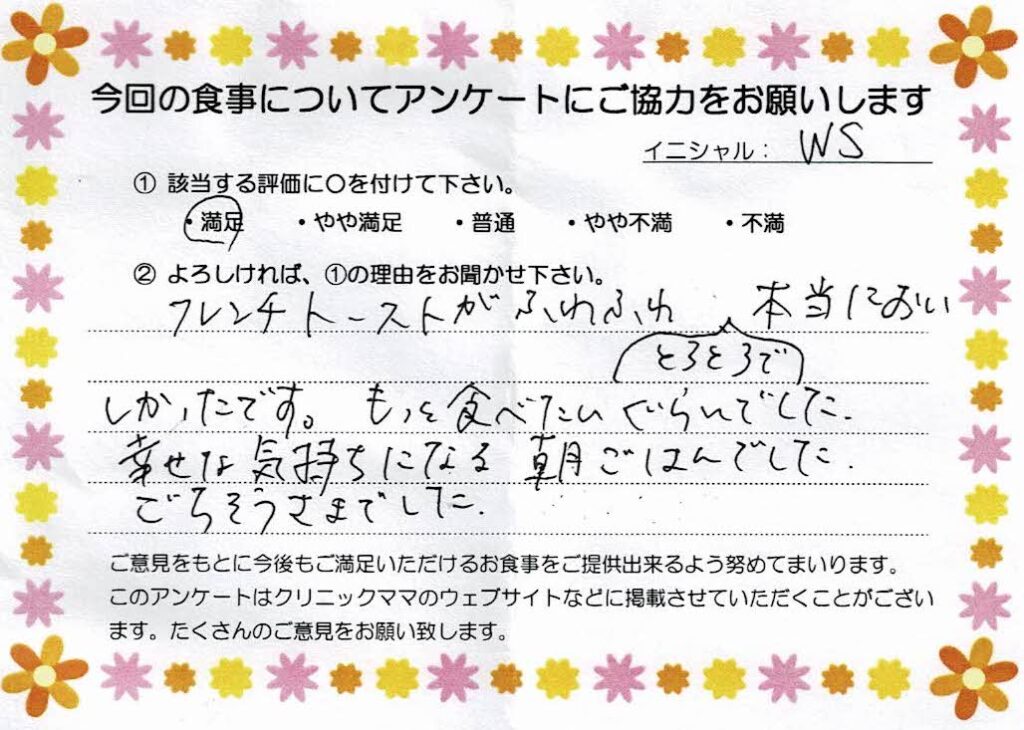 今回の食事についてアンケートにご協力をお願いします
イニシャル： WS
① 該当する評価に○を付けて下さい。
・満足 ・やや満足 ・普通 ・やや不満 ・不満
② よろしければ、①の理由をお聞かせ下さい。
フレンチトーストがふわふわ 本当においい
とろとろで
しかったです。 もっと食べたいぐらいでした.
幸せな気持ちになる 朝ごはんでした.
ごちそうさまでした.
ご意見をもとに今後もご満足いただけるお食事をご提供出来るよう努めてまいります。
このアンケートはクリニックママのウェブサイトなどに掲載させていただくことがござい
ます。たくさんのご意見をお願い致します。